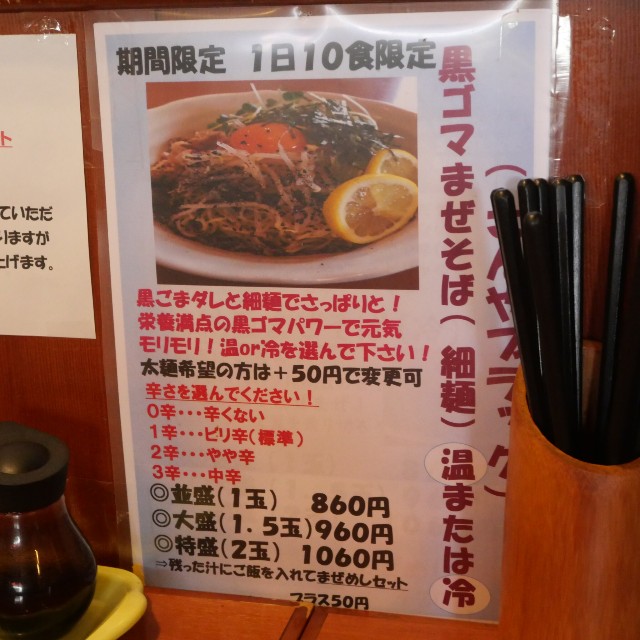 期間限定 1日10食限定
黒ゴマまぜそば(細麺) 温または冷
黒ごまダレと細麺でさっぱりと!
栄養満点の黒ゴマパワーで元気
モリモリ!温or冷を選んで下さい!
太麺希望の方は+50円で変更可
辛さを選んでください!
0辛・・・辛くない
1辛・・・ピリ辛(標準)
2辛・・・やや辛
3辛・・・中辛
◎並盛(1玉) 860円
◎大盛(1.5玉)960円
◎特盛(2玉) 1060円
⇒残った汁にご飯を入れてまぜめしセット
プラス50円
ト
ていただ
りますが
上げます。